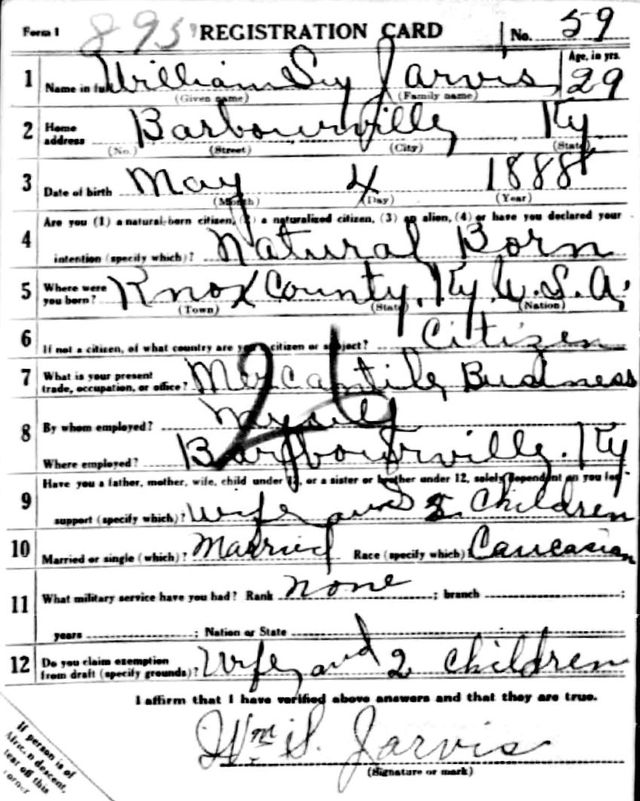 Form 1 895 REGISTRATION CARD No. 59
1 Name in full William Sy Jarvis Age, in yrs. 29
(Given name) (Family name)
2 Home address Barbourville, Ky
(No.) (Street) (City) (State)
3 Date of birth May 4 1888
(Month) (Day) (Year)
Are you (1) a natural-born citizen, (2) a naturalized citizen, (3) an alien, (4) or have you declared your
4 intention (specify which)? Natural Born
5 Where were you born? Knox County, Ky U.S.A.
(Town) (State) (Nation)
6 If not a citizen, of what country are you a citizen or subject? Citizen
7 What is your present trade, occupation, or office? Mercantile Business
26
8 By whom employed? Myself
Where employed? Barbourville, Ky
9 Have you a father, mother, wife, child under 12, or a sister or brother under 12, solely dependent on you for
support (specify which)? Wife and 2 Children
10 Married or single (which)? Married Race (specify which)? Caucasian
11 What military service have you had? Rank none ; branch ;
years ; Nation or State
12 Do you claim exemption from draft (specify grounds)? Wife, and 2 children
I affirm that I have verified above answers and that they are true.
Wm S. Jarvis
(Signature or mark)
If person is of
African descent,
tear off this
corner